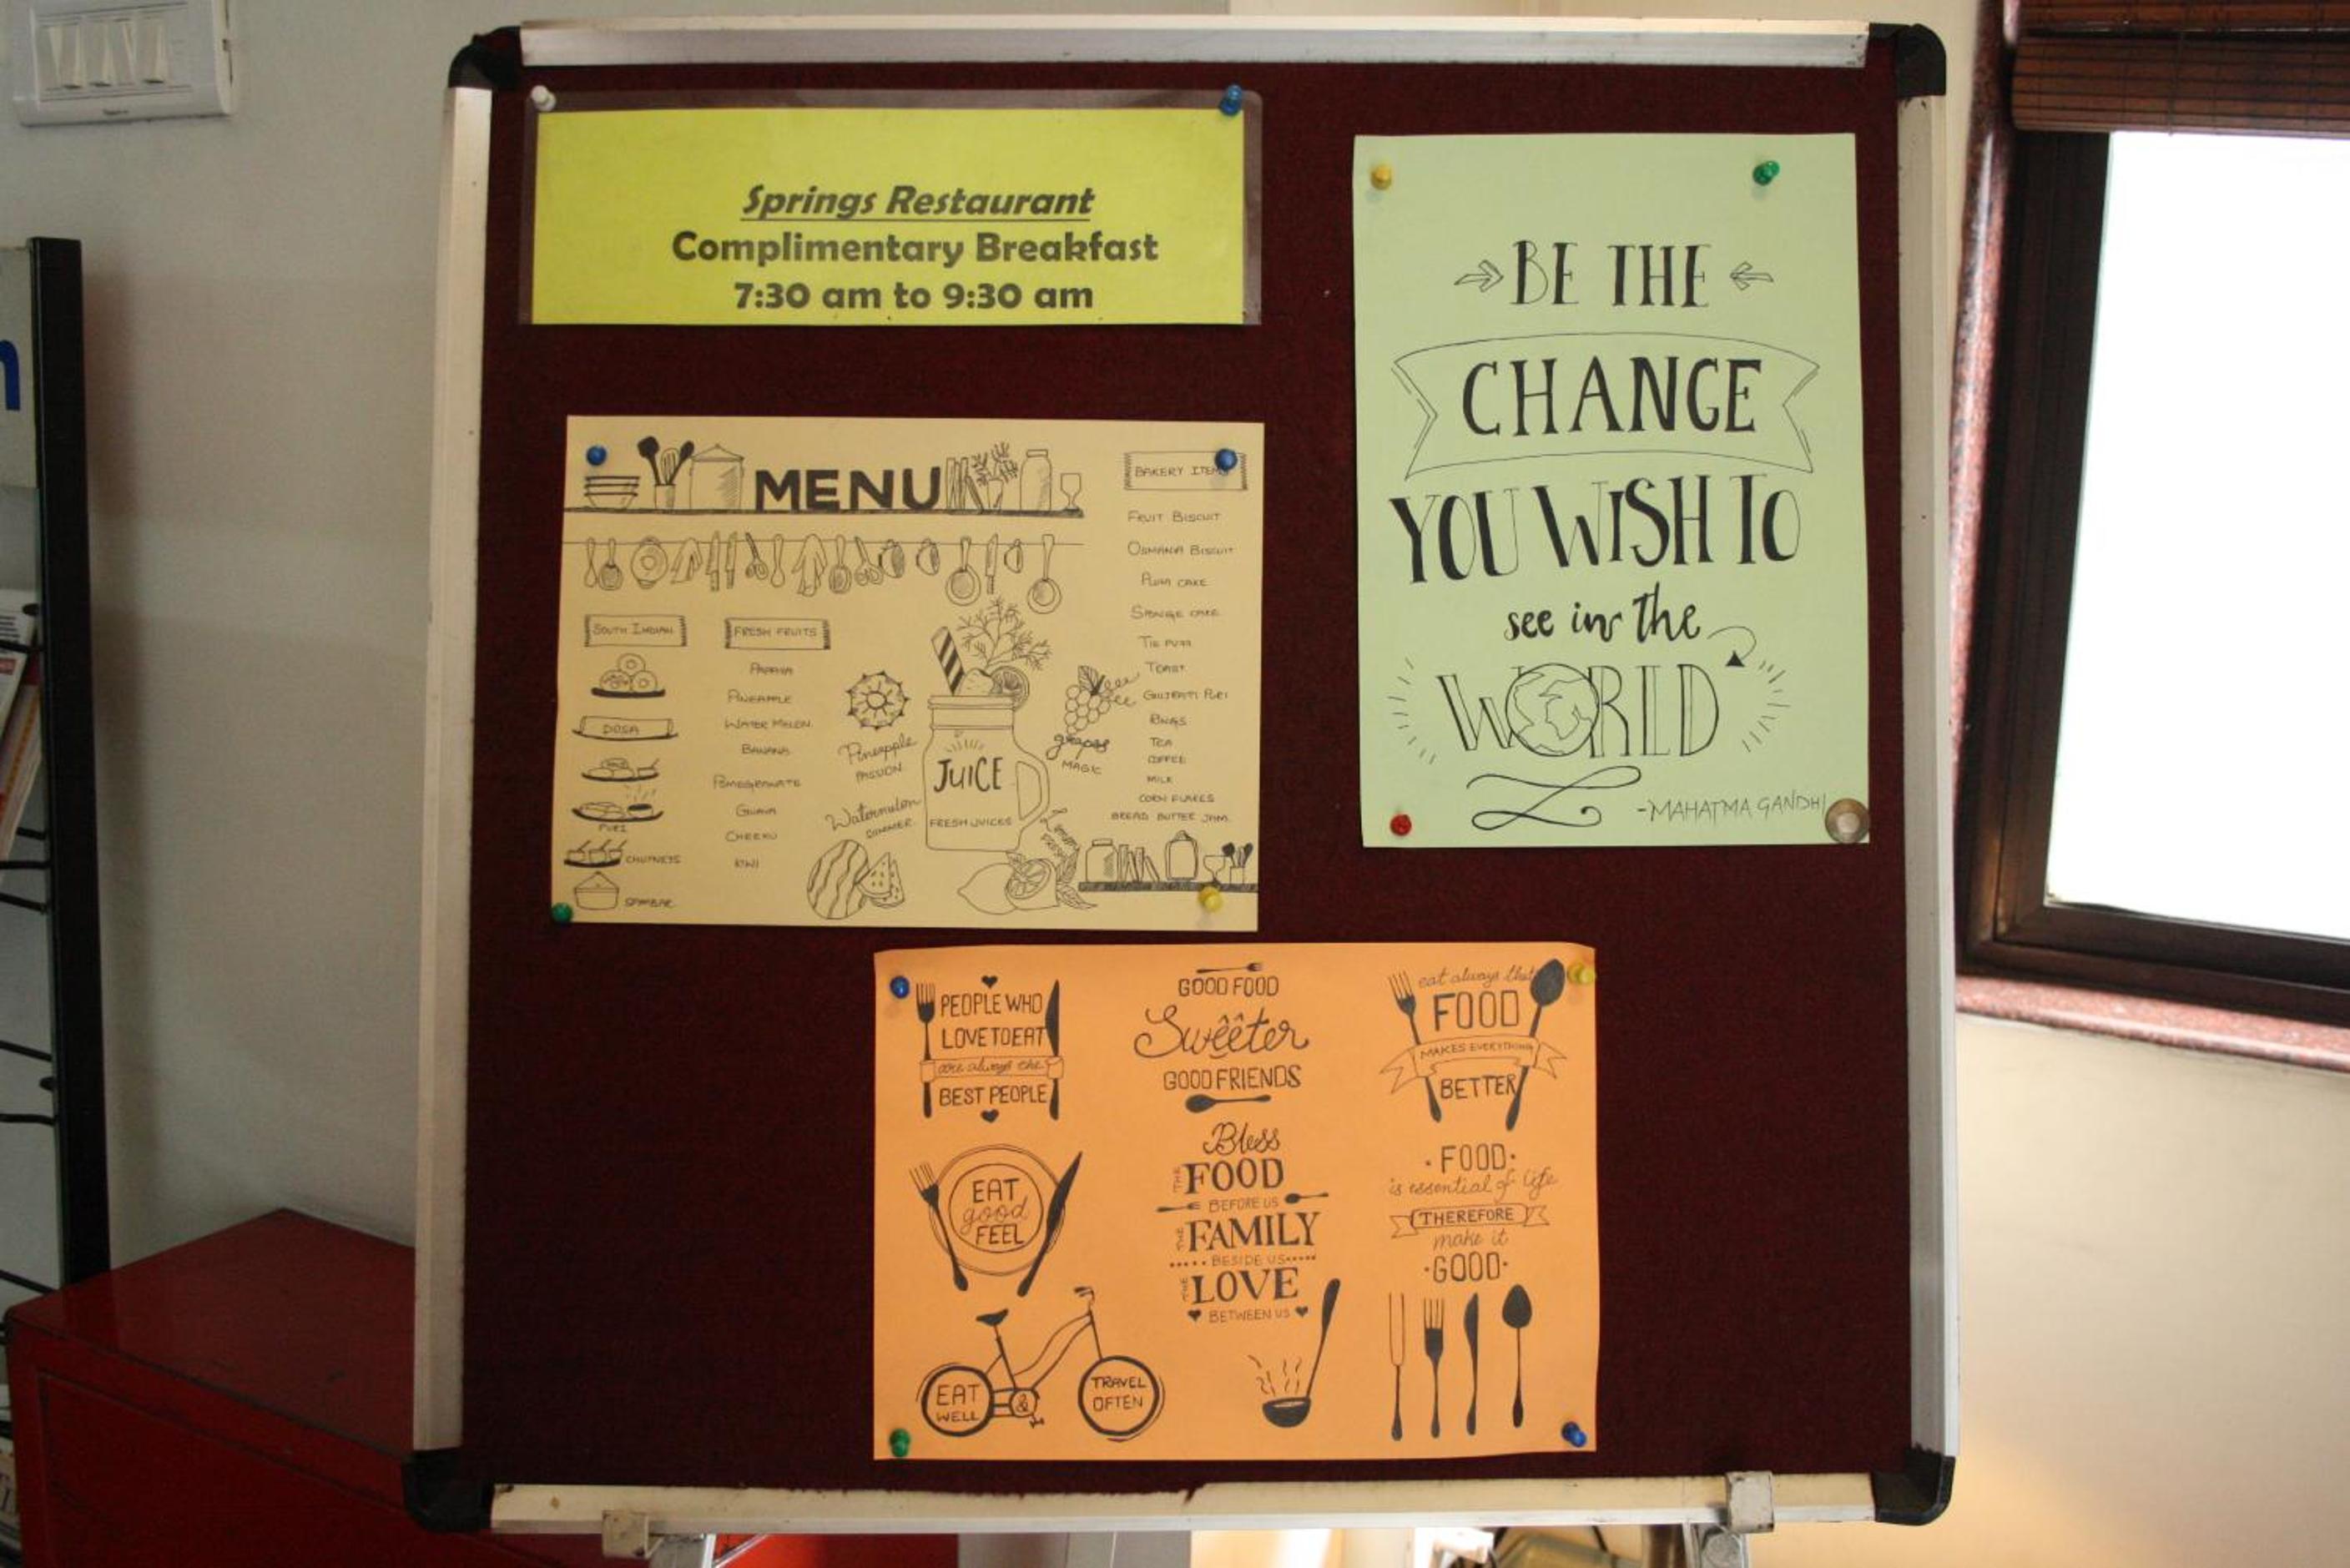 Springs Restaurant
Complimentary Breakfast
7:30 am to 9:30 am
BE THE
CHANGE
YOU WISH TO
see in the
WORLD
-MAHATMA GANDHI
MENU
SOUTH INDIAN
DOSA
PURI
CHUTNEYS
SAMBAR
FRESH FRUITS
PAPAYA
PINEAPPLE
WATER MELON
BANANA
POMEGRANATE
GUAVA
CHEEKU
KIWI
Pineapple
PASSION
Watermelon
SUMMER
JUICE
FRESH JUICES
grapes
MAGIC
BAKERY ITEM
FRUIT BISCUIT
OSMANIA BISCUIT
PLUM CAKE
SPONGE CAKE
TIE PUFF
TOAST
GUJRATI PURI
RINGS
TEA
COFFEE
MILK
CORN FLAKES
BREAD BUTTER JAM
PEOPLE WHO
LOVE TO EAT
are always the
BEST PEOPLE
GOOD FOOD
Sweeter
GOOD FRIENDS
eat always that
FOOD
MAKES EVERYTHING
BETTER
EAT
good
FEEL
Bless
THE FOOD
BEFORE US
THE FAMILY
BESIDE US
THE LOVE
BETWEEN US
FOOD
is essential of life
THEREFORE
make it
GOOD
EAT
WELL
&
TRAVEL
OFTEN